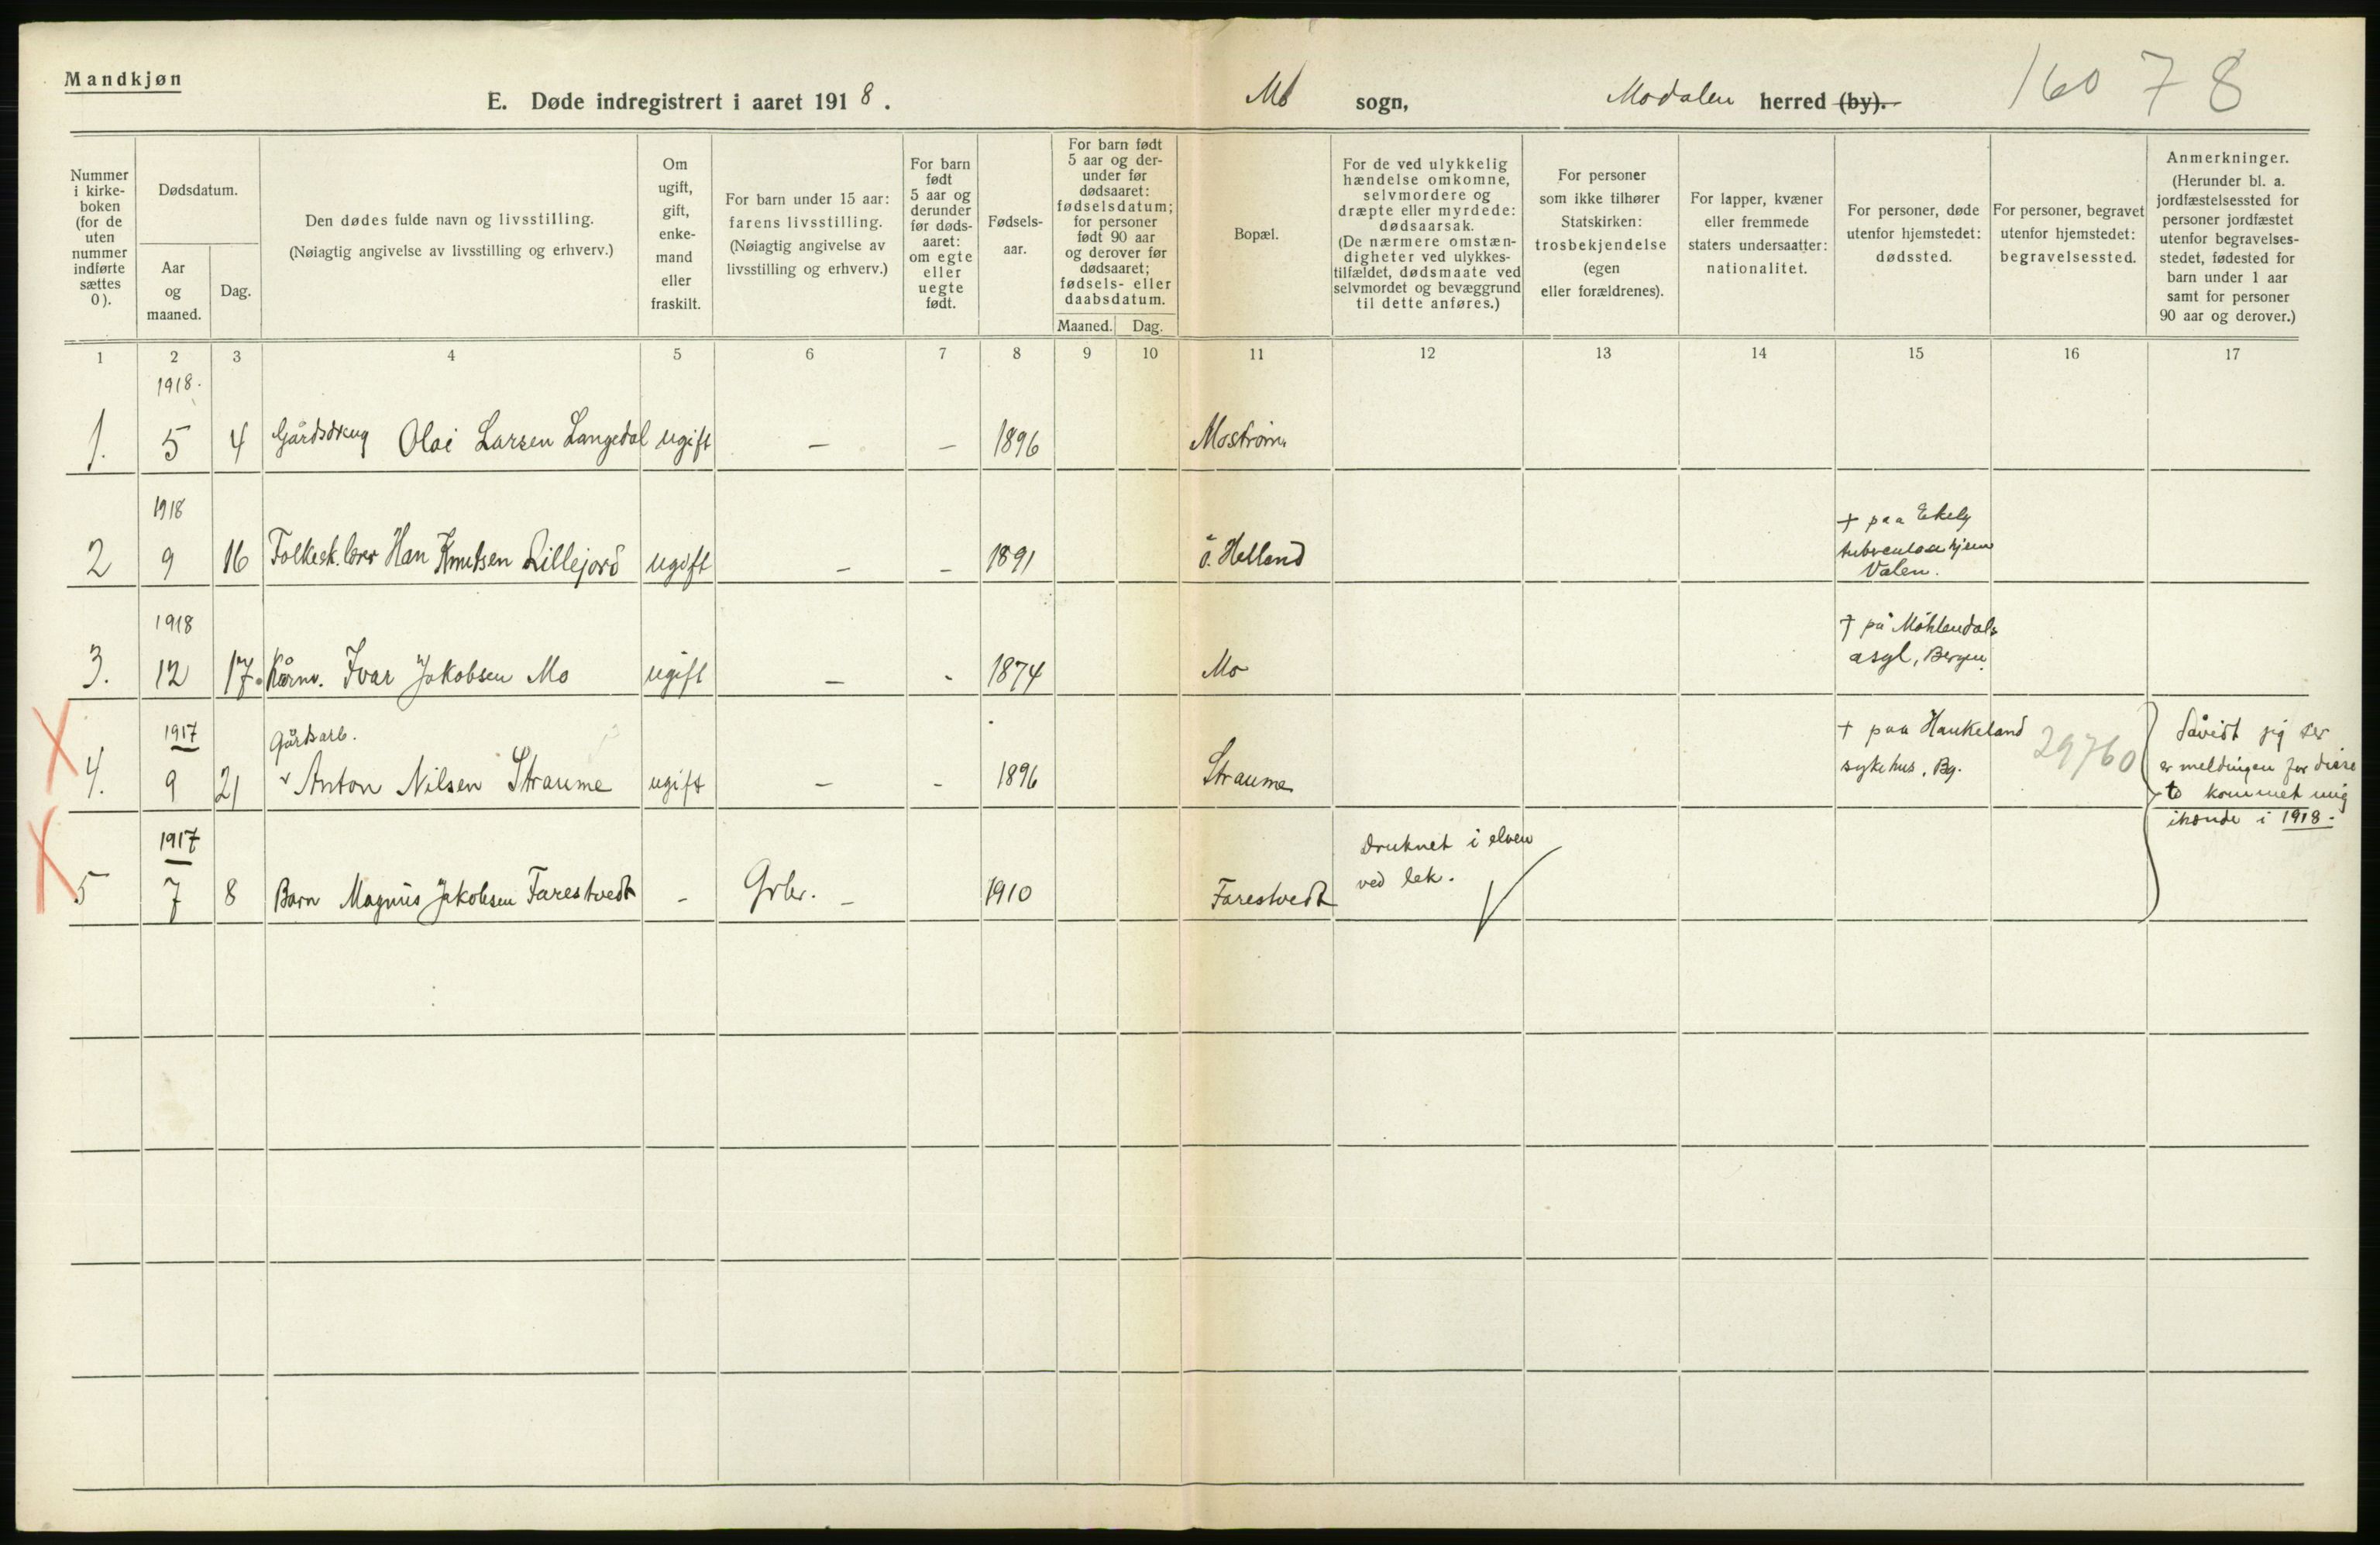 Mandkjøn
E. Døde indregistrert i aaret 1918.
Mo sogn,
Modalen herred (by).
160 7 8
Nummer i kirkeboken (for de uten nummer indførte sættes 0).
Dødsdatum.
Aar og maaned.
Dag.
Den dødes fulde navn og livsstilling.
(Nøiagtig angivelse av livsstilling og erhverv.)
Om ugift, gift, enkemand eller fraskilt.
For barn under 15 aar: farens livsstilling.
(Nøiagtig angivelse av livsstilling og erhverv.)
For barn født 5 aar og derunder før dødsaaret: om egte eller uegte født.
Fødselsaar.
For barn født 5 aar og derunder før dødsaaret: fødselsdatum; for personer født 90 aar og derover før dødsaaret; fødsels- eller daabsdatum.
Maaned. Dag.
Bopæl.
For de ved ulykkelig hændelse omkomne, selvmordere og dræpte eller myrdede: dødsaarsak.
(De nærmere omstændigheter ved ulykkestilfældet, dødsmaate ved selvmordet og bevæggrund til dette anføres.)
For personer som ikke tilhører Statskirken: trosbekjendelse (egen eller forældrenes).
For lapper, kvæner eller fremmede staters undersaatter: nationalitet.
For personer, døde utenfor hjemstedet: dødssted.
For personer, begravet utenfor hjemstedet: begravelsessted.
Anmerkninger.
(Herunder bl. a. jordfæstelsessted for personer jordfæstet utenfor begravelsesstedet, fødested for barn under 1 aar samt for personer 90 aar og derover.)
1 2 3 4 5 6 7 8 9 10 11 12 13 14 15 16 17
1918.
1. 5 4 Gårdsdreng Olai Larsen Langedal ugift – – 1896 Mostrøm
1918
2 9 16 Folkesk.lærer Han Knutsen Lillejord ugift – – 1891 ö. Helland
+ paa Ekely
tuberculosehjem
Valen.
1918
3. 12 17. Kårm. Ivar Jakobsen Mo ugift – - 1874 Mo
† på Möhlendals
asyl, Bergen
1917
Gårdsarb.
4. 9 21 Anton Nilsen Straume ugift – - 1896 Straume
+ paa Haukeland
sykehus, Bg.
29760
Såvidt jeg ser
er meldingen for disse
to kommet mig
ihænde i 1918.
1917
5 7 8 Barn Magnus Jakobsen Farestvedt - Grbr. – 1910 Farestvedt
Druknet i elven
ved lek.